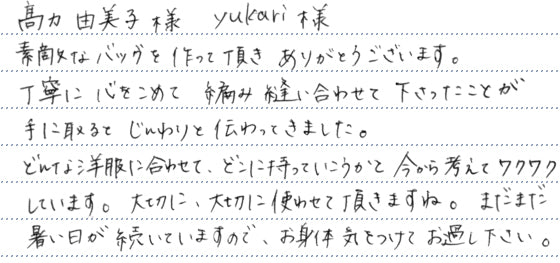 髙力 由美子様 yukari様
素敵なバッグを作って頂き ありがとうございます。
丁寧に 心をこめて 編み 縫い合わせて 下さったことが
手に取ると じんわりと 伝わってきました。
どんな洋服に合わせて、どこに持っていこうかと 今から考えて ワクワク
しています。大切に、大切に使わせて頂きますね。 まだまだ
暑い日が 続いていますので、お身体 気をつけて お過し下さい。